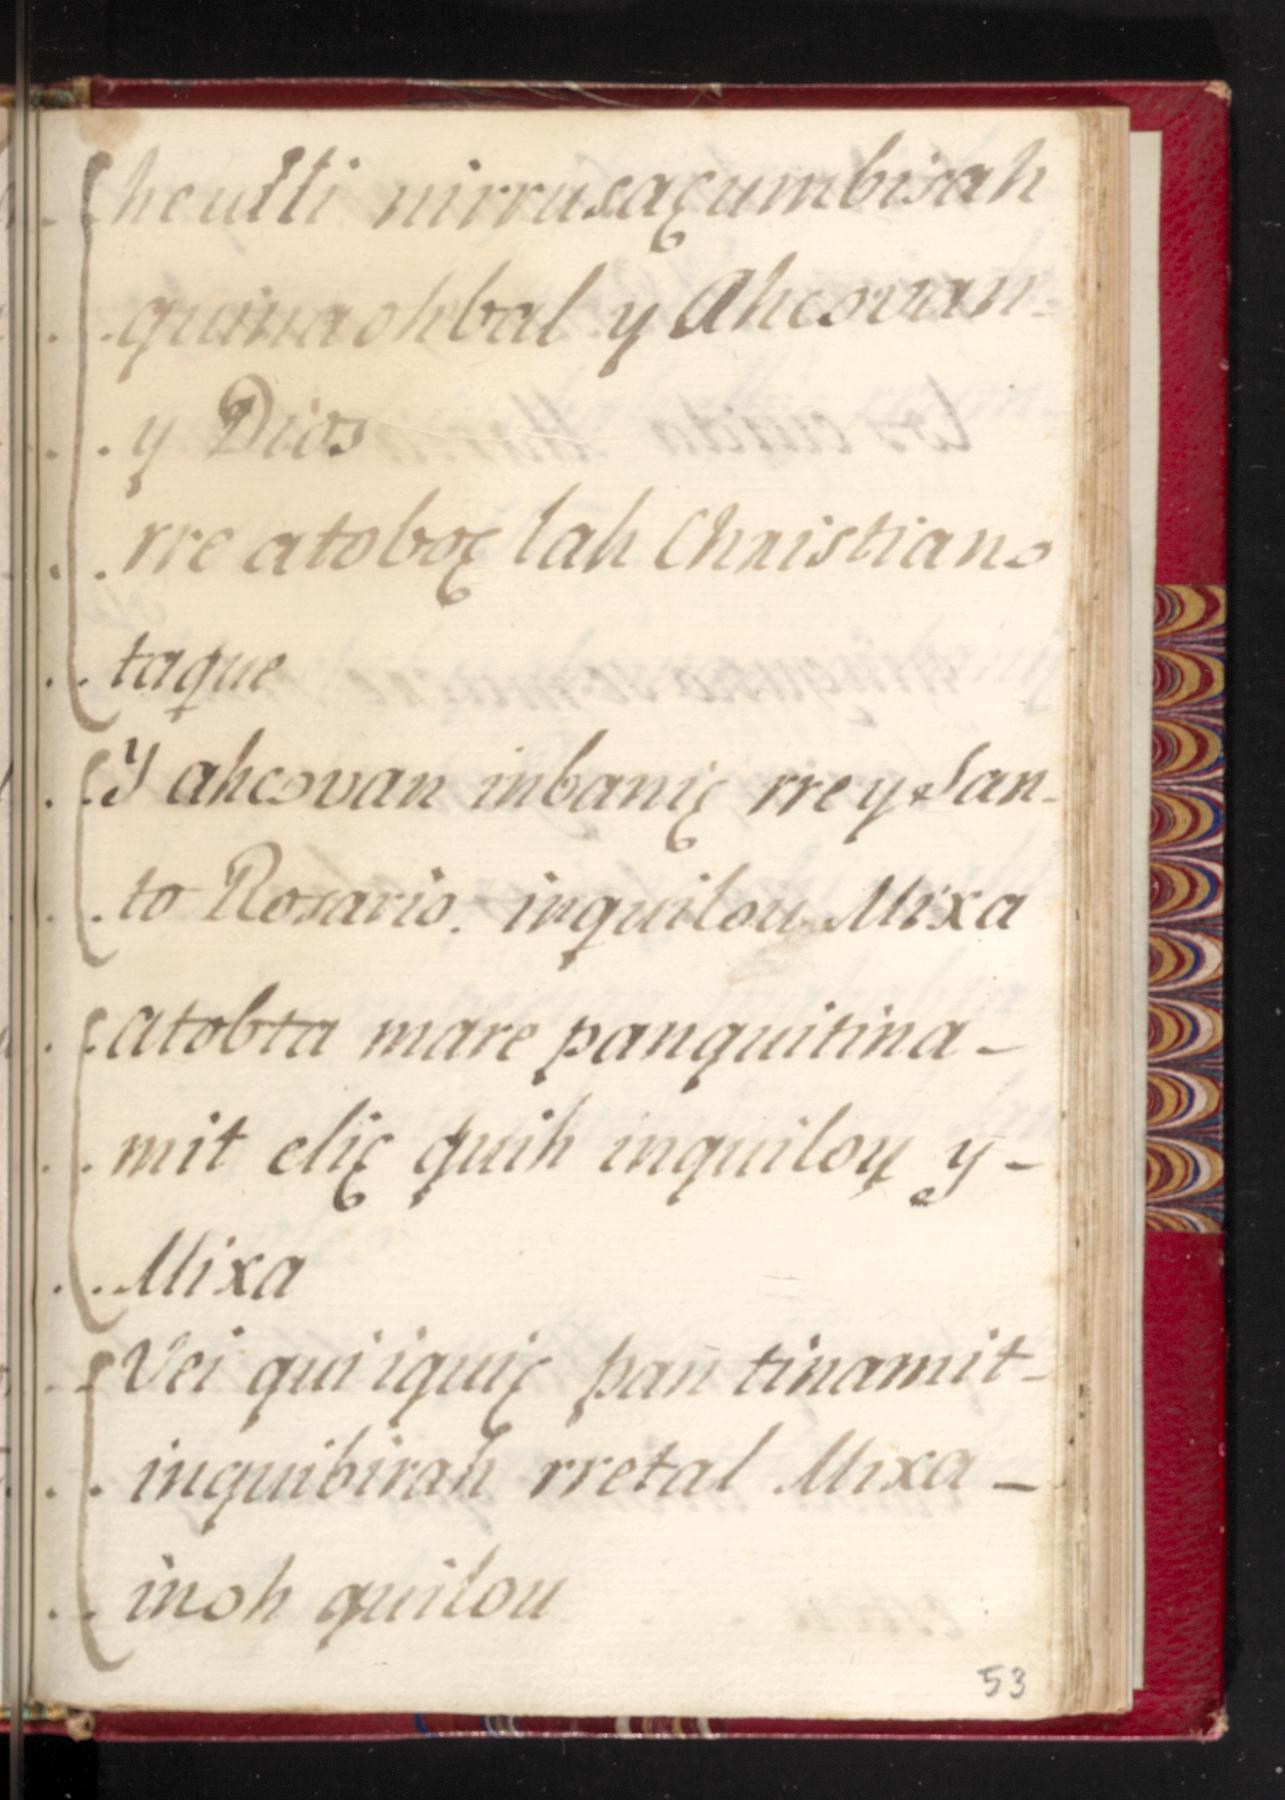 hcutti nirrusaçumbisah
quinaohbal y Ahcovan-
y Dios
rre atoboç lah Christiano
taque
Y ahcovan inbaniç rre y San-
to Rosario. inquilou Mixa
atobta mare panquitina-
mit eliç quih inquilou y-
Mixa
Vei qui iquiç pan tinamit-
inquibirah rretal Mixa-
inoh quilou
53